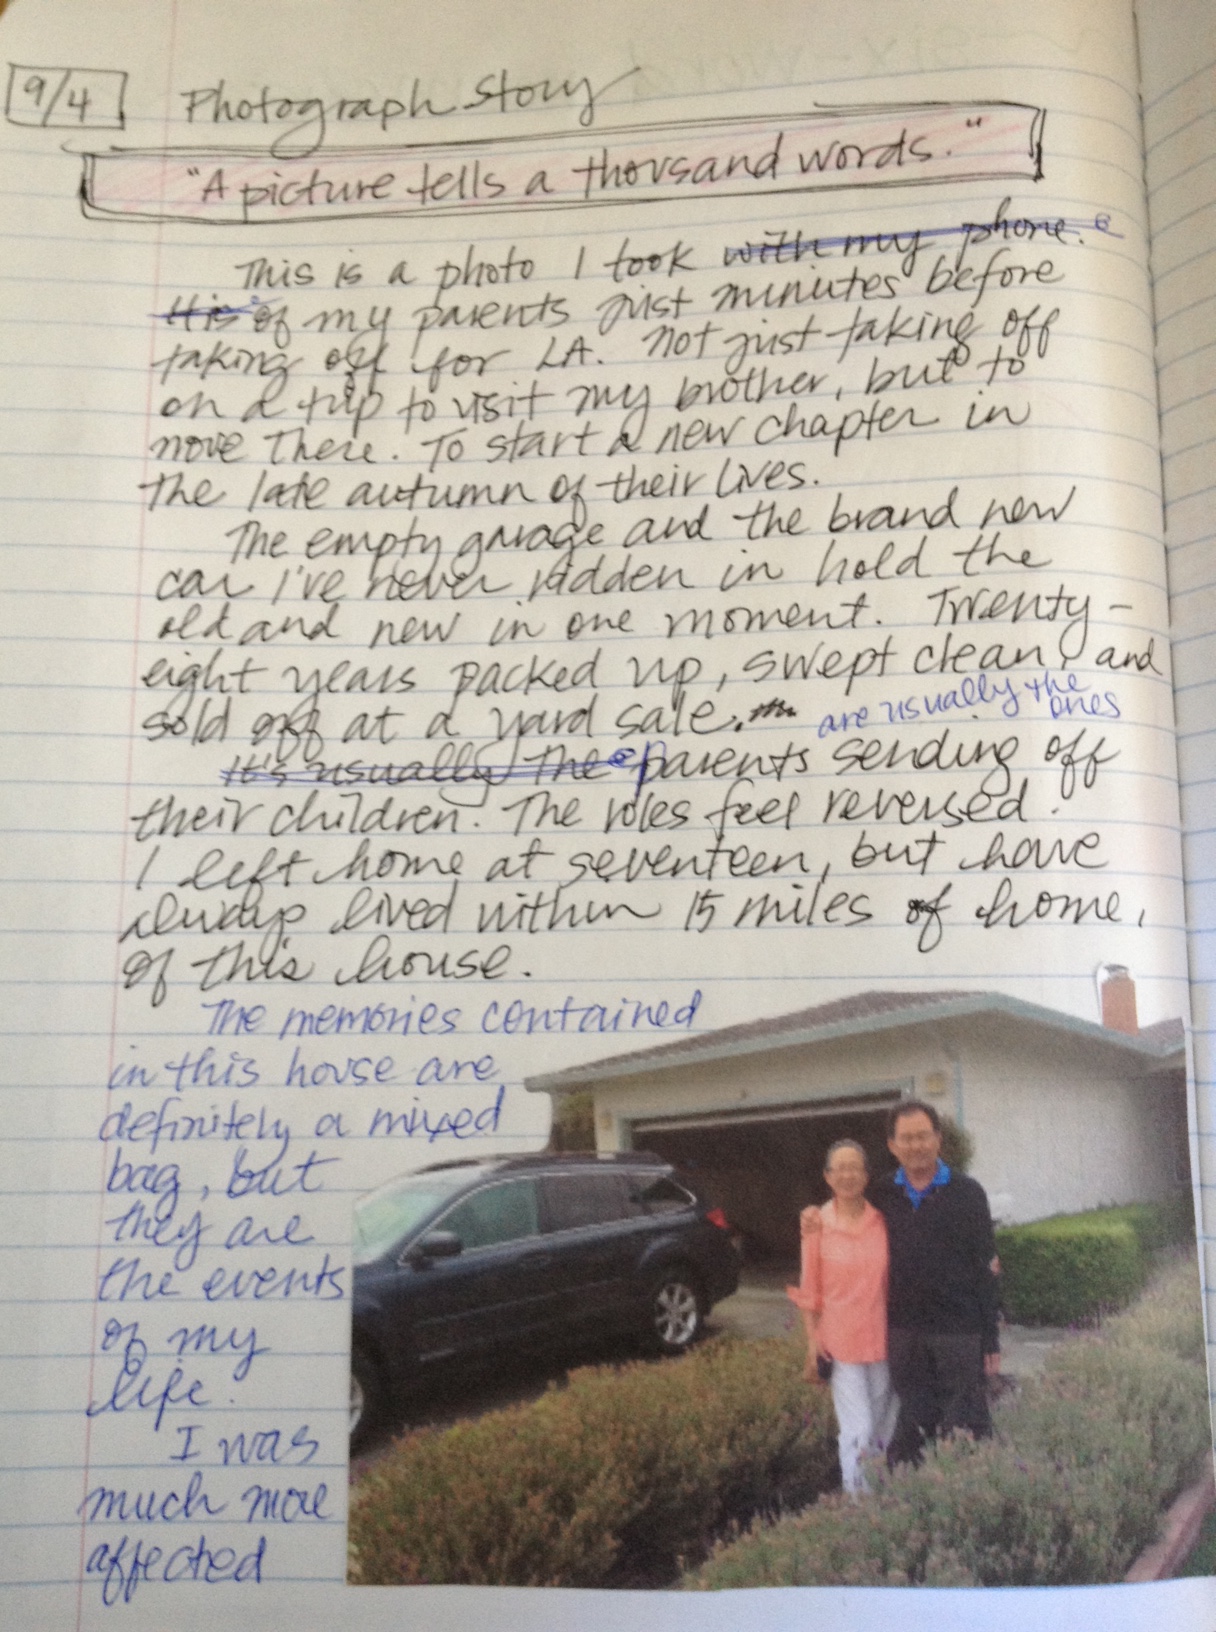 9/4 Photograph Story
"A picture tells a thousand words."
This is a photo I took with my phone.
this of my parents just minutes before
taking off for LA. Not just taking off
on a trip to visit my brother, but to
move there. To start a new chapter in
the late autumn of their lives.
The empty garage and the brand new
car I've never ridden in hold the
old and new in one moment. Twenty-
eight years packed up, swept clean, and
sold off at a yard sale.
are usually the
ones
It's usually the parents sending off
their children. The roles feel reversed.
I left home at seventeen, but have
always lived within 15 miles of home,
of this house.
The memories contained
in this house are
definitely a mixed
bag, but
they are
the events
of my
life.
I was
much more
affected